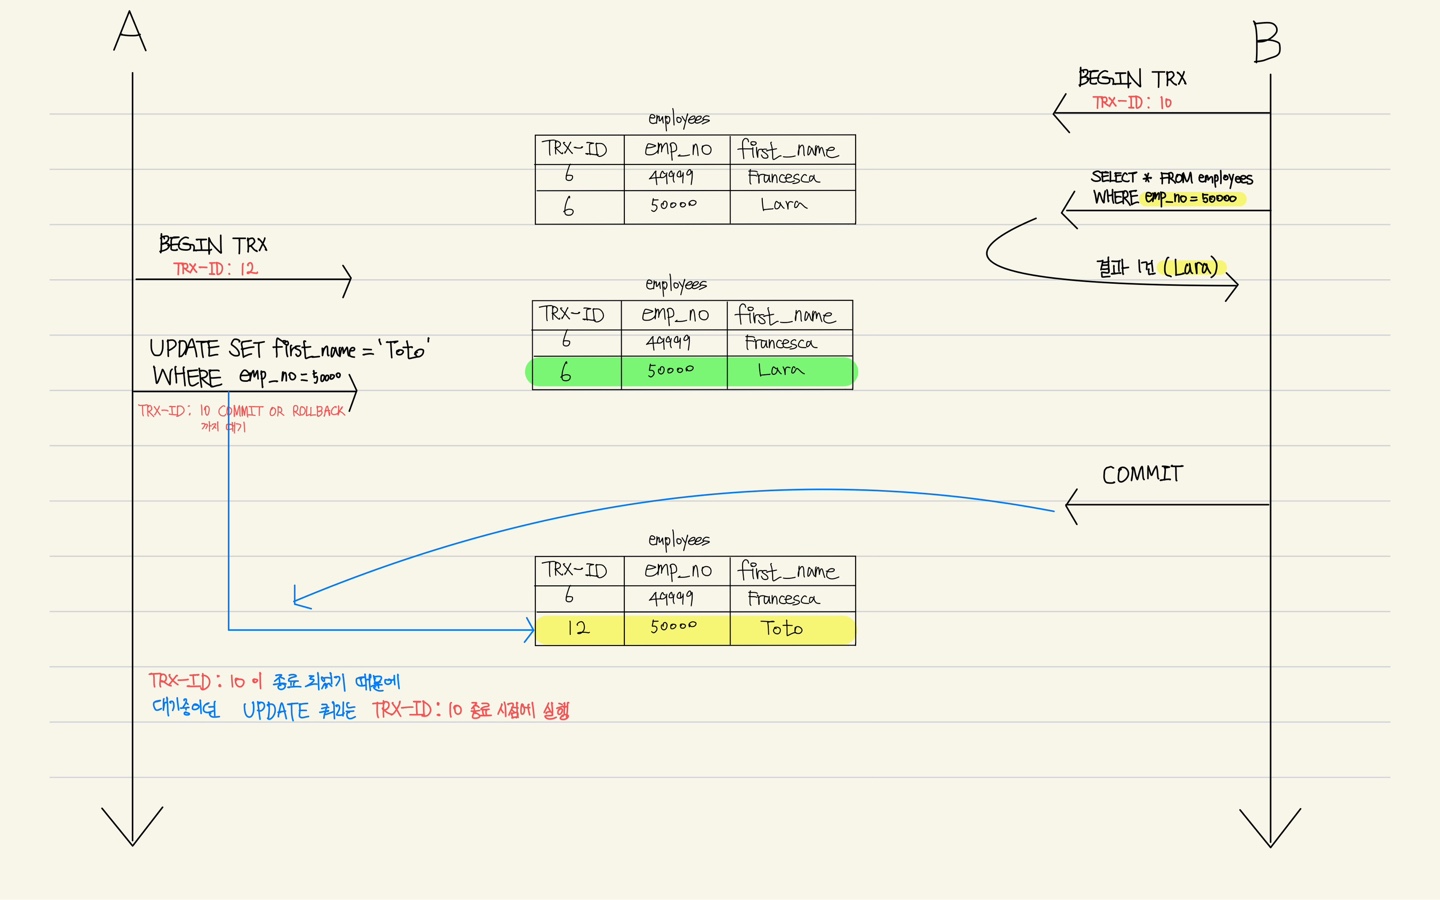 A
B
BEGIN TRX
TRX-ID: 10
employees
TRX-ID emp_no first_name
6 49999 Francesca
6 50000 Lara
SELECT * FROM employees
WHERE emp_no = 50000
결과 1건 (Lara)
BEGIN TRX
TRX-ID: 12
employees
TRX-ID emp_no first_name
6 49999 Francesca
6 50000 Lara
UPDATE SET first_name = 'Toto'
WHERE emp_no = 50000
TRX-ID: 10 COMMIT OR ROLLBACK
까지 대기
COMMIT
employees
TRX-ID emp_no first_name
6 49999 Francesca
12 50000 Toto
TRX-ID: 10 이 종료 되었기 때문에
대기중이던 UPDATE 쿼리는 TRX-ID: 10 종료 시점에 실행